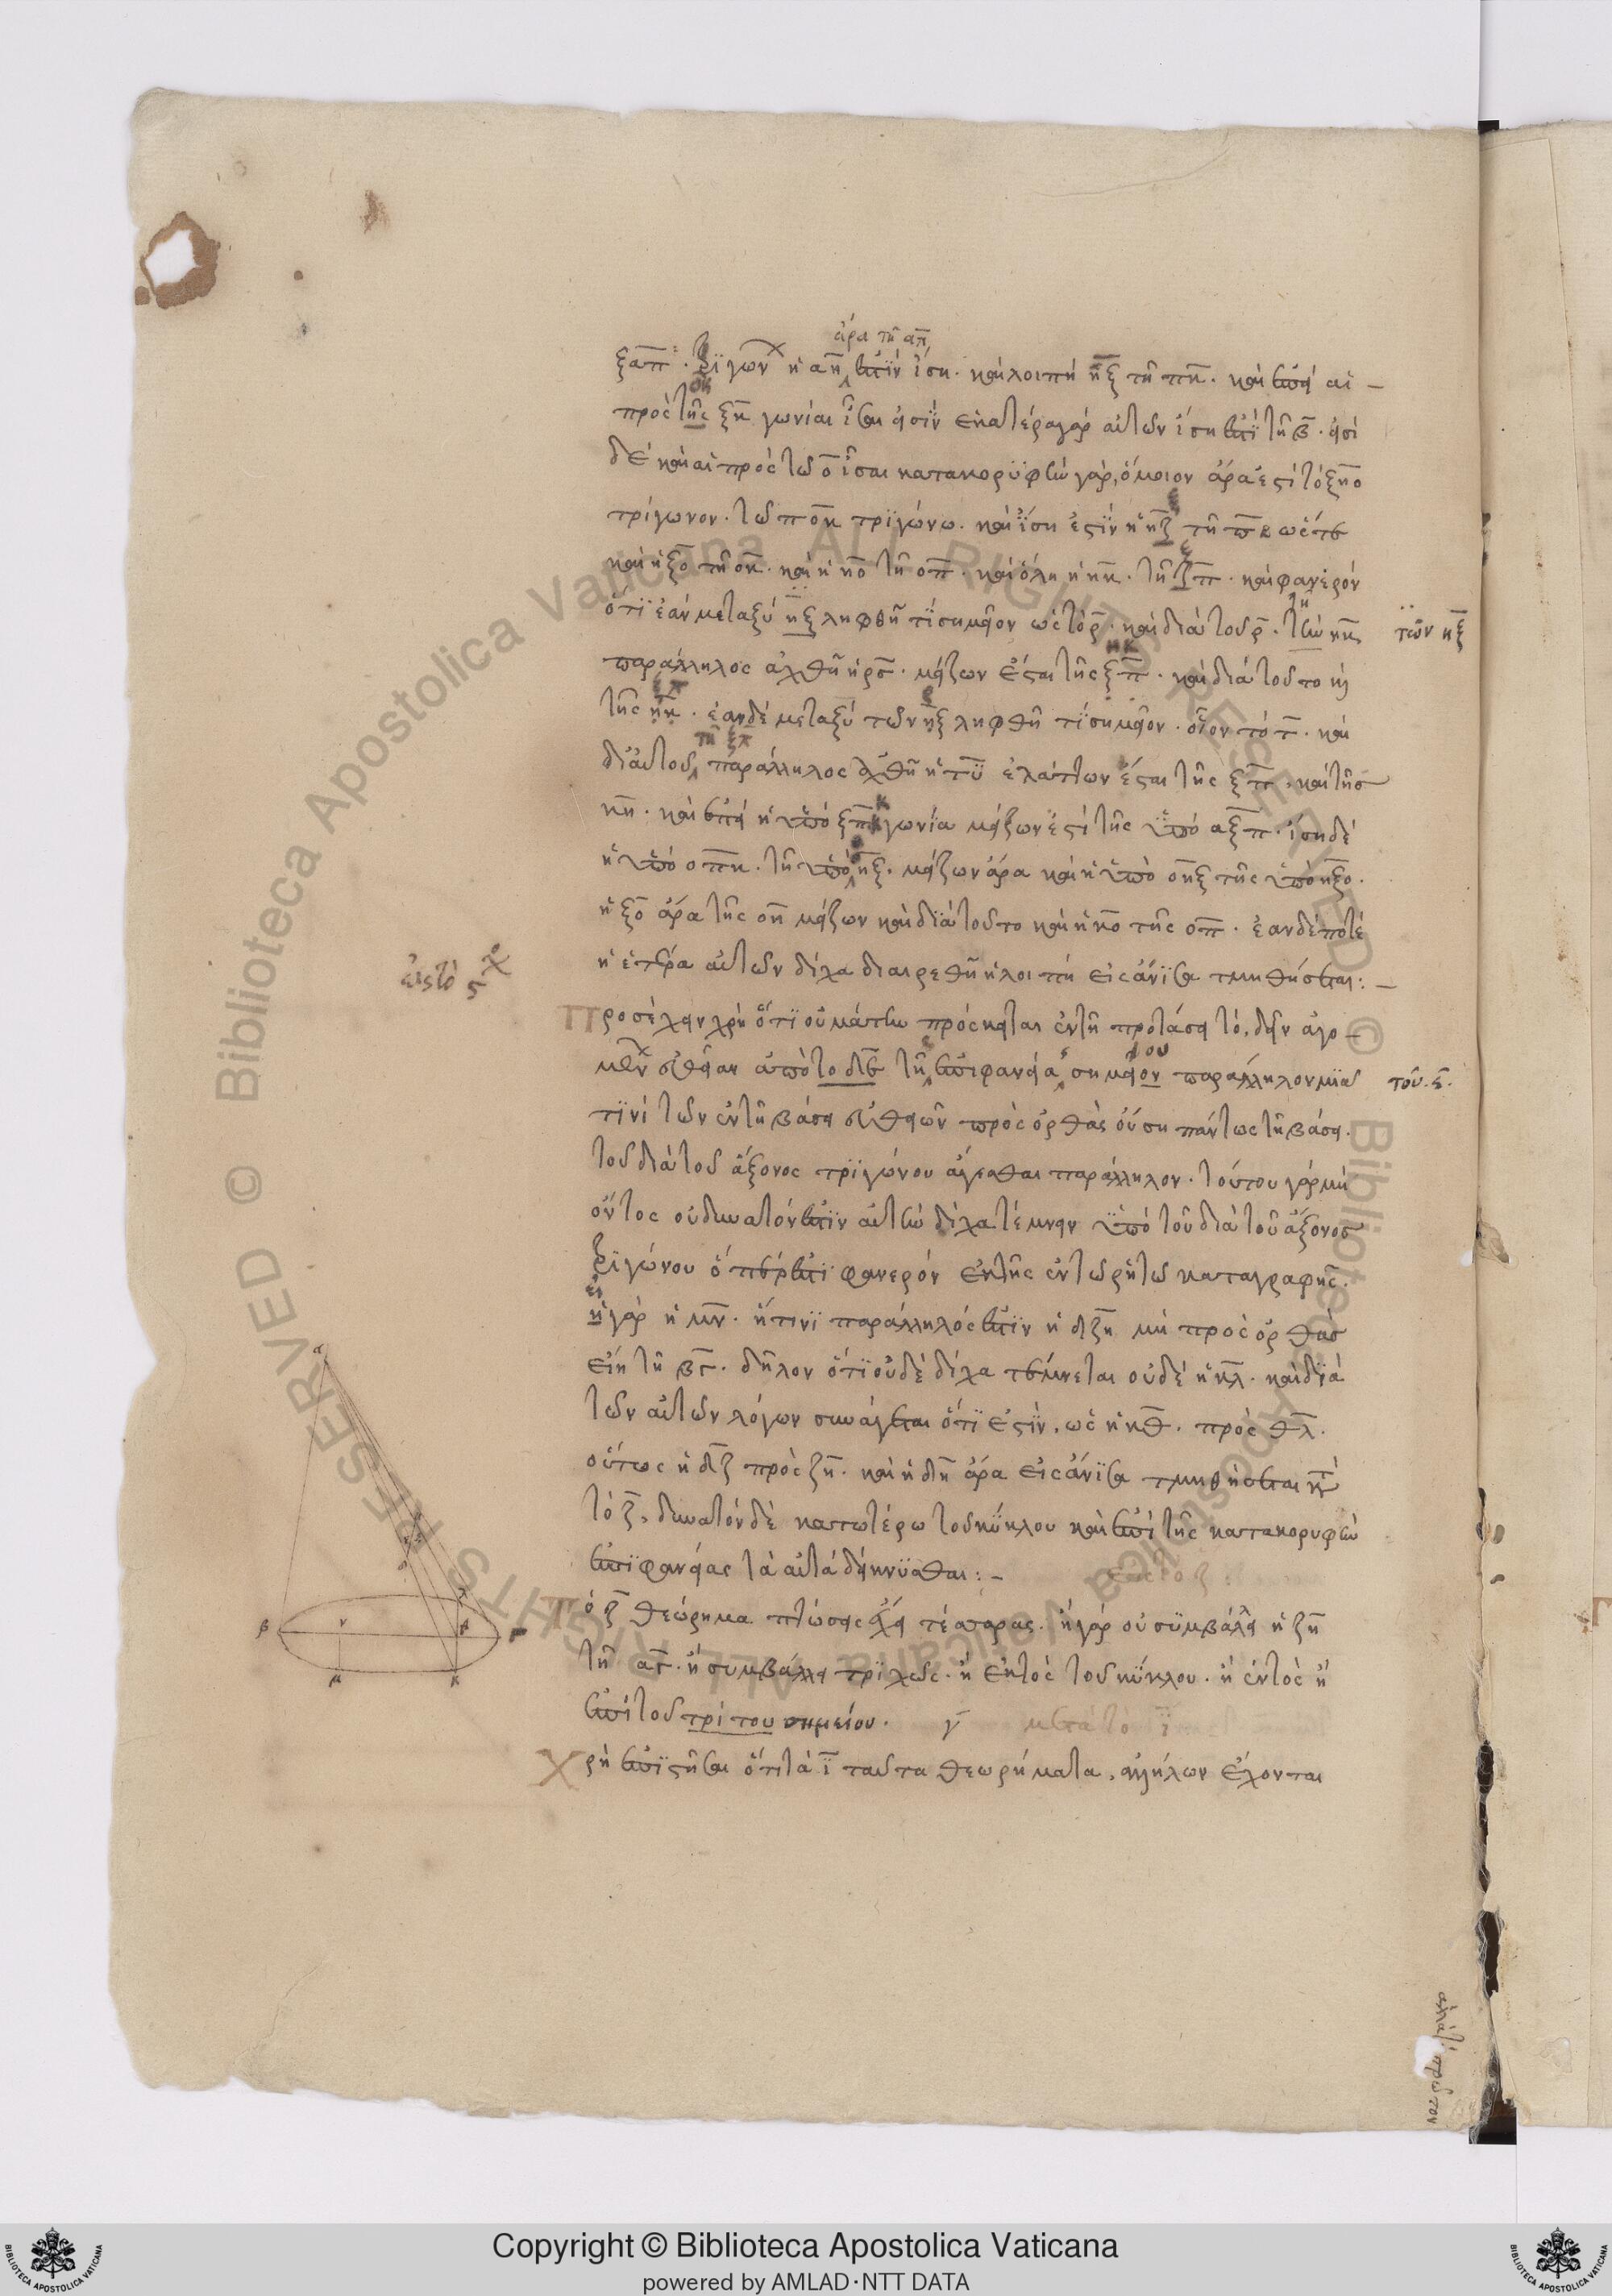 ἄρα τῆ απ
ξαπ· τριγων ἡ αη ἐστιν ἴση· καὶ λοιπὴ ηξ τῆ πκ· καὶ ἐπεὶ αἱ
πρὸς τῆς ξη γωνίαι ἴσαι εἰσὶν ἑκατέρα γὰρ αὐτῶν ἴση ἐστὶ τῆ β· εἰσὶ
δὲ καὶ αἱ πρὸς τῶ ο ἴσαι κατακορυφὴν γάρ, ὅμοιον ἄρα ἐστὶ τὸ ξηο
τρίγωνον· τῶ ποκ τριγώνω· καὶ ἴση ἐστὶν ἡ ηξ τῆ πκ ὥστε
καὶ ἡ ξο τῆ οκ· καὶ ἡ ηο τῆ οπ· καὶ ὅλη ἡ ηκ· τῆ ξπ· καὶ φανερὸν
ὅτι ἐὰν μεταξὺ ηξ ληφθῆ τι σημεῖον ὡς τὸ ρ· καὶ διὰ τοῦ ρ· τῆ ηκ
τῶν ηξ
παράλληλος ἀχθῆ ἡ ρσ· μείζων ἔσται τῆς ξπ· καὶ διὰ τοῦτο καὶ
τῆς ηκ· ἐὰν δὲ μεταξὺ τῶν ηξ ληφθῆ τι σημεῖον· οἷον τὸ τ· καὶ
τῆ ξπ
δι' αὐτοῦ παράλληλος ἀχθῆ ἡ τυ ἐλάττων ἔσται τῆς ξπ· καὶ τῆς
κη· καὶ ἐπεὶ ἡ ὑπὸ ξπκ γωνία μείζων ἐστὶ τῆς ὑπὸ αξπ· ἴση δὲ
ἡ ὑπὸ οπκ· τῆ ὑπὸ ηξ· μείζων ἄρα καὶ ἡ ὑπὸ οηξ τῆς ὑπὸ ηξο·
ἡ ξο ἄρα τῆς οη μείζων καὶ διὰ τοῦτο καὶ ἡ κο τῆς οπ· ἐὰν δέ ποτε
ἡ ἑτέρα αὐτῶν δίχα διαιρεθῆ ἡ λοιπὴ εἰς ἄνισα τμηθήσεται:–
εἰς τὸ ς
Προσέχειν χρὴ ὅτι οὐ μάτην πρόσκειται ἐν τῆ προτάσει τὸ, δεῖν ἀγο–
μεν εὐθεῖαν ἀπὸ το ἐπὶ τῆ ἐπιφανεία σημεῖον παράλληλον μιᾶ
τοῦ·
τινὶ τῶν ἐν τῆ βάσει εὐθειῶν πρὸς ὀρθὰς οὔση πάντως τῆ βάσει·
τοῦ διὰ τοῦ ἄξονος τριγώνου ἄγεσθαι παράλληλον· τούτου γὰρ μὴ
ὄντος οὐ δυνατόν ἐστιν αὐτὴν δίχα τέμνειν ὑπὸ τοῦ διὰ τοῦ ἄξονος
τριγώνου ὅπερ ἐστὶ φανερὸν ἐκ τῆς ἐν τῶ ῥητῶ καταγραφῆς·
εἰ γὰρ ἡ μν· ἥτινι παράλληλός ἐστιν ἡ δζη μὴ πρὸς ὀρθὰς
εἴη τῆ βγ· δῆλον ὅτι οὐδὲ δίχα τέμνεται οὐδὲ ἡ κλ· καὶ διὰ
τῶν αὐτῶν λόγων συνάγεται ὅτι ἐστὶν, ὡς ἡ κθ· πρὸς θλ·
οὕτως ἡ δζ πρὸς ζη· καὶ ἡ δη ἄρα εἰς ἄνισα τμηθήσεται κατὰ
τὸ ζ, δυνατὸν δὲ κατωτέρω τοῦ κύκλου καὶ ἐπὶ τῆς κατακορυφὴν
ἐπιφανείας τὰ αὐτὰ δείκνυσθαι:–
εἰς τὸ ζ
τὸ ζ θεώρημα πτώσεις ἔχει τέσσαρας· ἢ γὰρ οὐ συμβάλλει ἡ ζη
τῆ αγ· ἢ συμβάλλει τριχῶς· ἢ ἐκτὸς τοῦ κύκλου· ἢ ἐντὸς ἢ
ἐπὶ τοῦ τρίτου σημείου· γ μετὰ τὸ ι
Χρὴ ἐπιστῆσαι ὅτι τὰ ι ταῦτα θεωρήματα, ἀλλήλων ἔχονται
Copyright © Biblioteca Apostolica Vaticana
powered by AMLAD·NTT DATA